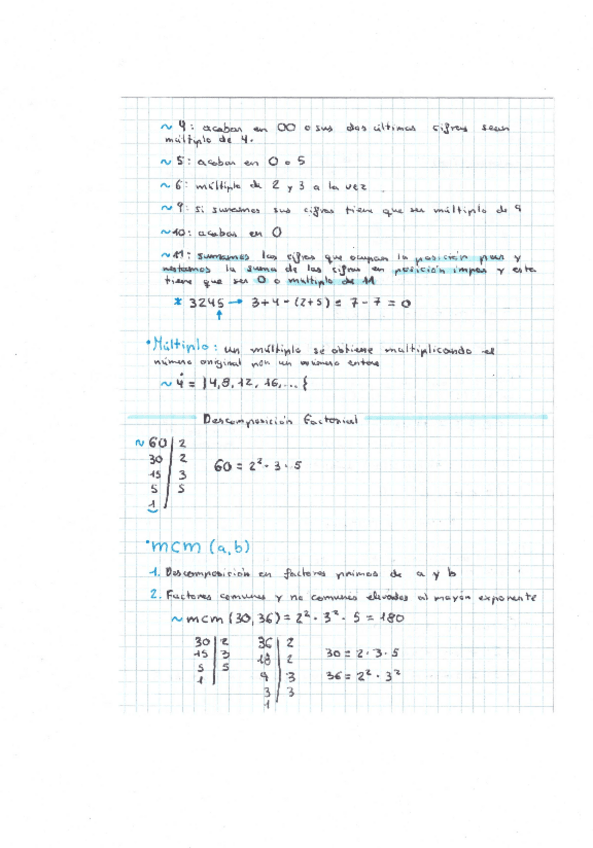 ~ 4: acaban en 00 o sus dos últimas cifras sean
múltiplo de 4.
~ 5: acaban en 0 o 5
~ 6: múltiplo de 2 y 3 a la vez.
~ 9: si sumamos sus cifras tiene que ser múltiplo de 9
~ 10: acaban en 0
~ 11: sumamos las cifras que ocupan la posición par y
restamos la suma de las cifras en posición impar y esta
tiene que ser 0 o multiplo de 11
* 3245 → 3+4-(2+5) = 7-7 = 0
↑
• Múltiplo: un múltiplo se obtiene multiplicando el
número original por un número entero
~ 4̇ = }4,8,12, 16,...{
Descomposición factorial
~ 60 | 2
30 | 2
15 | 3
5 | 5
1
60 = 2² · 3 · 5
• mcm (a,b)
1. Descomposición en factores primos de a y b
2. Factores comunes y no comunes elevados al mayor exponente
~ mcm (30,36) = 2² · 3² · 5 = 180
30 | 2
15 | 3
5 | 5
1
36 | 2
18 | 2
9 | 3
3 | 3
1
30 = 2 · 3 · 5
36 = 2² · 3²